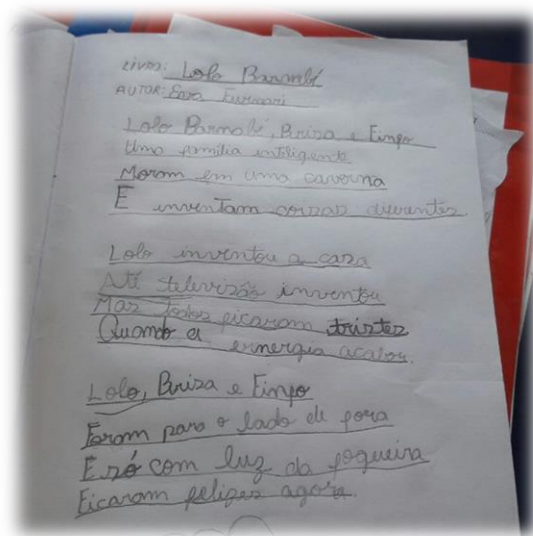 LIVRO: Lolo Barnabé
AUTOR: Eva Furnari
Lolo Barnabé, Brisa e Finfo
Uma família inteligente
Moram em uma caverna
E inventam coisas diferentes
Lolo inventou a casa
Até televisão inventou
Mas todos ficaram tristes
Quando a enernergia acabou.
Lolo, Brisa e Finfo
Foram para o lado de fora
E só com luz da fogueira
Ficaram felizes agora.